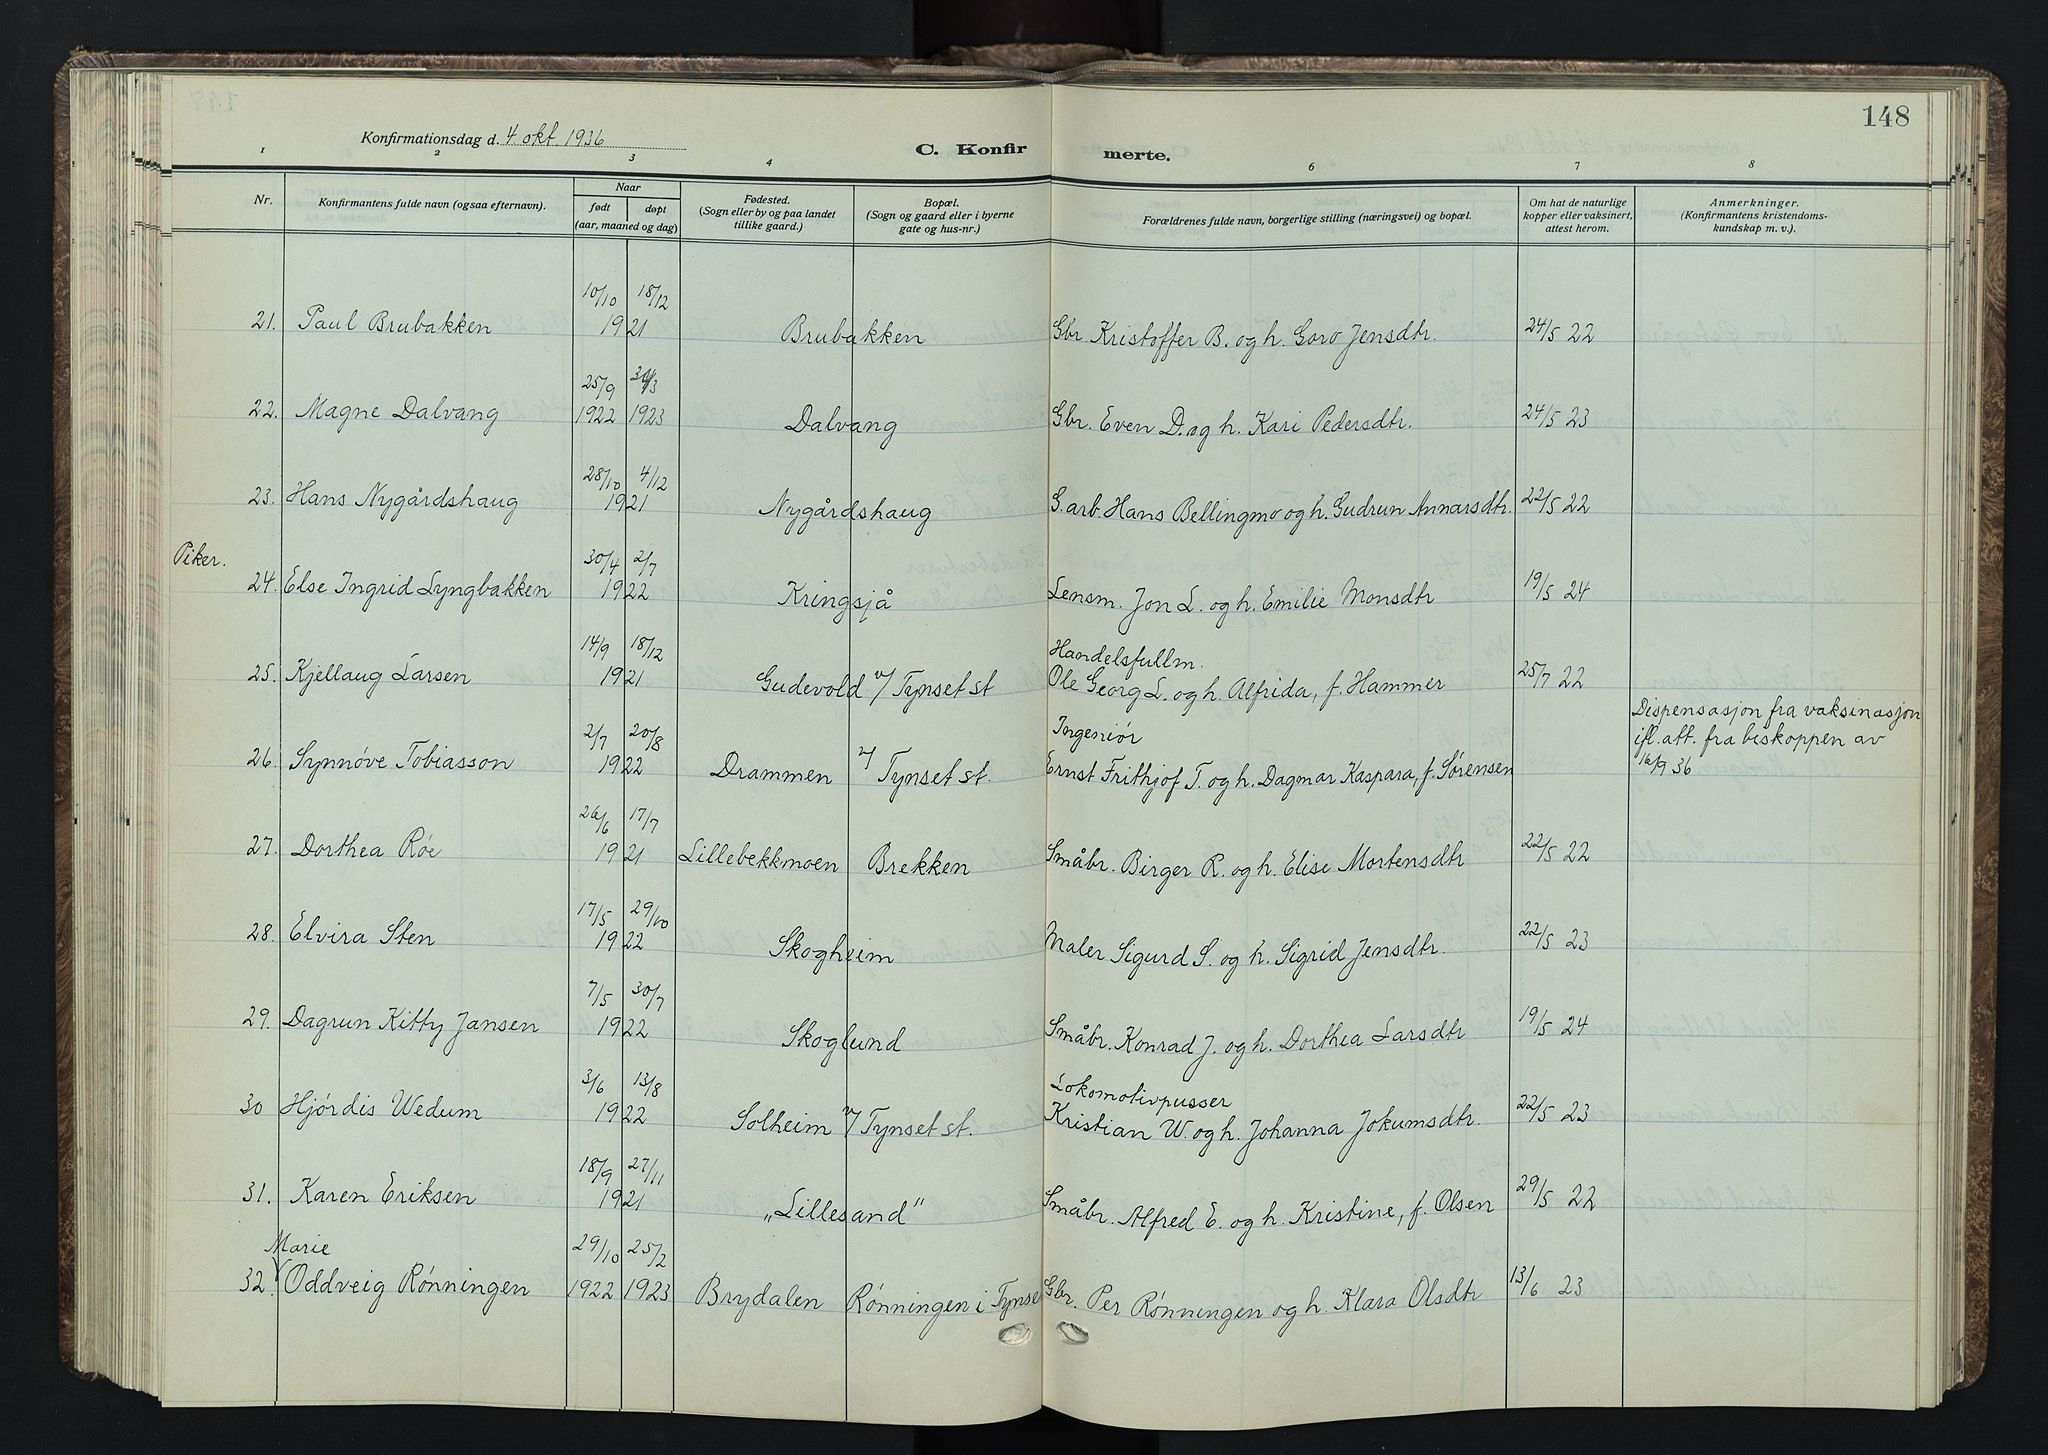 148
Konfirmationsdag d. 4. okt. 1936
C. Konfirmerte.
1 2 3 4 5 6 7 8
Nr. Konfirmantens fulde navn (ogsaa efternavn). Naar født døpt (aar, maaned og dag) Fødested. (Sogn eller by og paa landet tillike gaard.) Bopæl. (Sogn og gaard eller i byerne gate og hus-nr.) Forældrenes fulde navn, borgerlige stilling (næringsvei) og bopæl. Om hat de naturlige kopper eller vaksinert, attest herom. Anmerkninger. (Konfirmantens kristendomskundskap m. v.).
10/10 18/12
21. Paul Brubakken 1921 Brubakken Gbr. Kristoffer B. og h. Goro Jensdtr. 24/5 22
25/9 /3
22. Magne Dalvang 1922 1923 Dalvang Gbr. Even D. og h. Kari Pedersdtr. 24/5 23
28/10 4/12
23. Hans Nygårdshaug 1921 Nygårdshaug G.arb. Hans Bellingmo og h. Gudrun Annarsdtr. 22/5 22
Piker. 30/4 2/7
24. Else Ingrid Lyngbakken 1922 Kringsjå Lensm. Jon L. og h. Emilie Monsdtr 19/5 24
14/9 18/12 Handelsfullm.
25. Kjellaug Larsen 1921 Gudevold v/ Tynset st Ole Georg L. og h. Alfrida, f. Hammer 25/7 22
2/7 20/8 Ingeniör Dispensasjon fra vaksinasjon
ifl. att. fra biskoppen av
26. Synnöve Tobiasson 1922 Drammen v/ Tynset st. Ernst Frithjof T. og h. Dagmar Kaspara, f. Sørensen 16/9 36
26/6 17/7
27. Dorthea Röe 1921 Lillebekkmoen Brekken Småbr. Birger R. og h. Elise Mortensdtr 22/5 22
17/5 29/10
28. Elvira Sten 1922 Skogheim Maler Sigurd S. og h. Sigrid Jensdtr. 22/5 23
7/5 30/7
29. Dagrun Kitty Jansen 1922 Skoglund Småbr. Konrad J. og h. Dorthea Larsdtr 19/5 24
3/6 13/8 Lokomotivpusser
30 Hjördis Wedum 1922 Solheim v/ Tynset st. Kristian W. og h. Johanna Jokumsdtr. 22/5 23
18/9 27/11
31. Karen Eriksen 1921 „Lillesand" Småbr. Alfred E. og h. Kristine, f. Olsen 29/5 22
Marie 29/10 25/2
32. Oddveig Rønningen 1922 1923 Brydalen Rønningen i Tynse Gbr. Per Rønningen og h. Klara Olsdtr 13/6 23